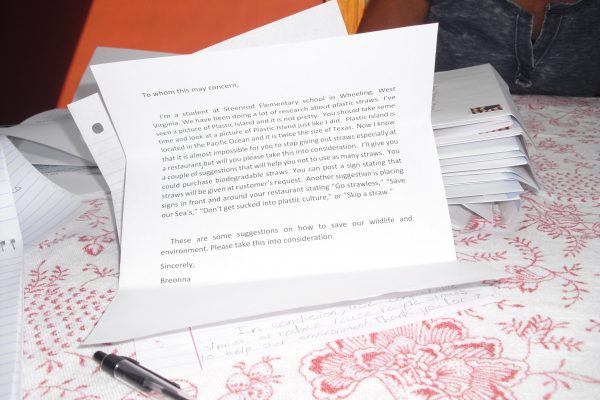 To whom this may concern,
I'm a student at Steenrod Elementary school in Wheeling, West
Virginia. We have been doing a lot of research about plastic straws. I've
seen a picture of Plastic Island and it is not pretty. You should take some
time and look at a picture of Plastic Island just like I did. Plastic Island is
located in the Pacific Ocean and it is twice the size of Texas. Now I know
that it is almost impossible for you to stop giving out straws especially at
a restaurant but will you please take this into consideration. I'll give you
a couple of suggestions that will help you not to use as many straws. You
could purchase biodegradable straws. You can post a sign stating that
straws will be given at customer's request. Another suggestion is placing
signs in front and around your restaurant stating "Go strawless," "Save
our Sea's," "Don't get sucked into plastic culture," or "Skip a straw."
These are some suggestions on how to save our wildlife and
environment. Please take this into consideration.
Sincerely,
Breonna
In conclusion,
to help our environment. Thank you for